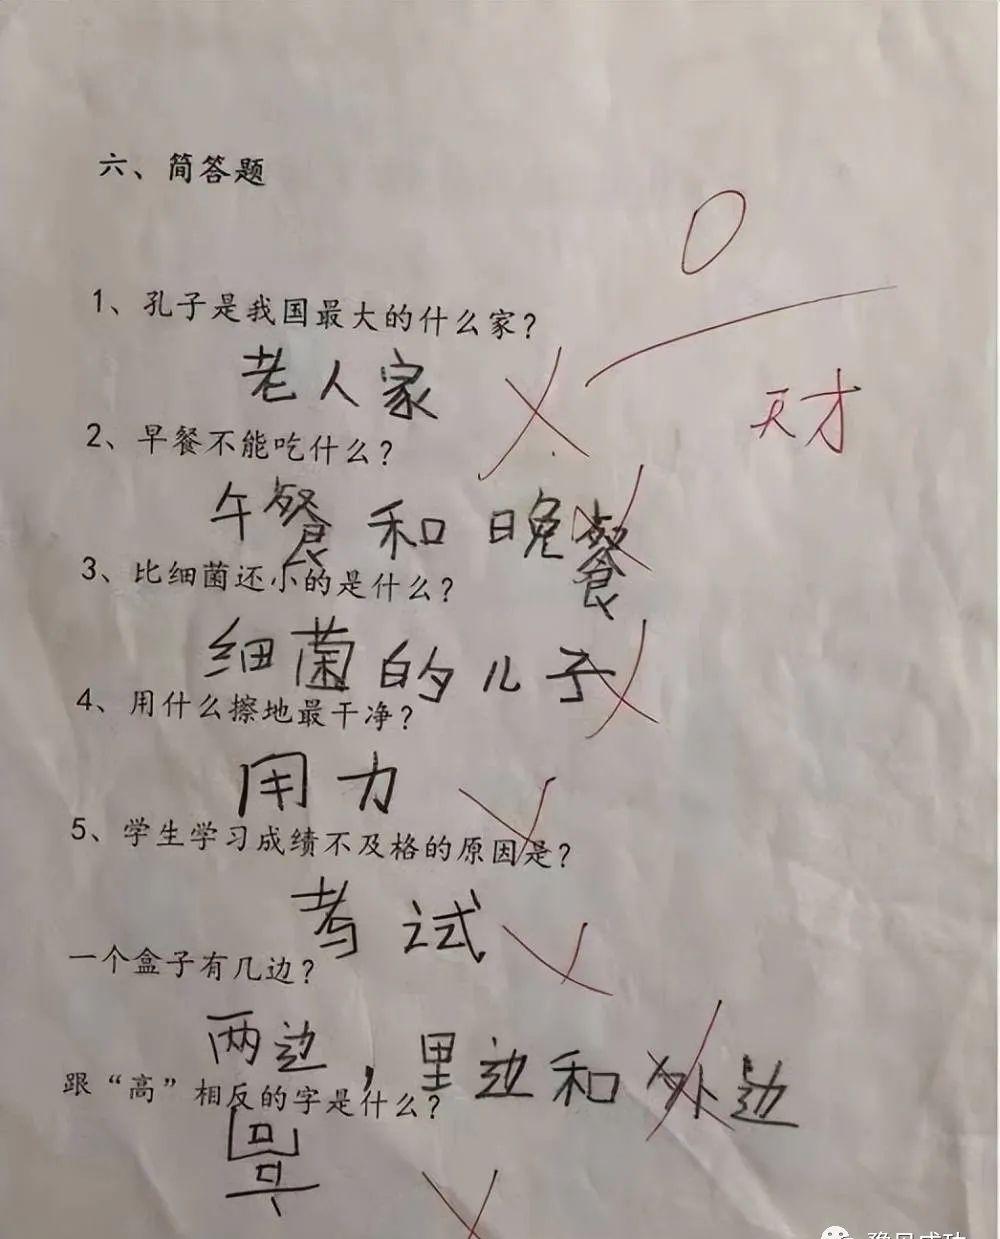 六、简答题
0
1、孔子是我国最大的什么家?
老人家
天才
2、早餐不能吃什么?
午餐和晚餐
3、比细菌还小的是什么?
细菌的儿子
4、用什么擦地最干净?
用力
5、学生学习成绩不及格的原因是?
考试
一个盒子有几边?
两边,里边和外边
跟“高”相反的字是什么?